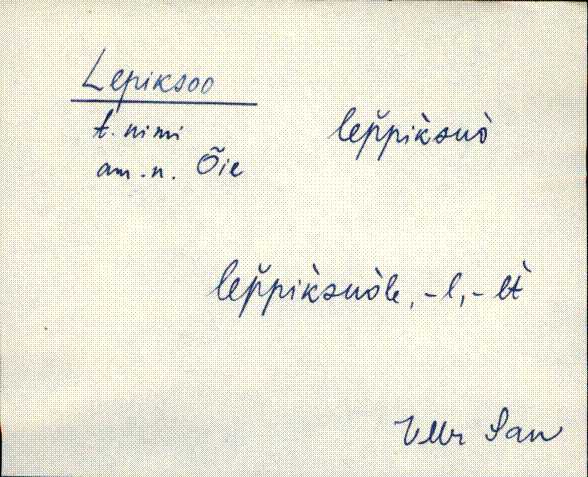 Lepiksoo
t. nimi
am. n. Õie
lep̆pik̀suò
lep̆pik̀suòle, -l, -lt̀
VMr San